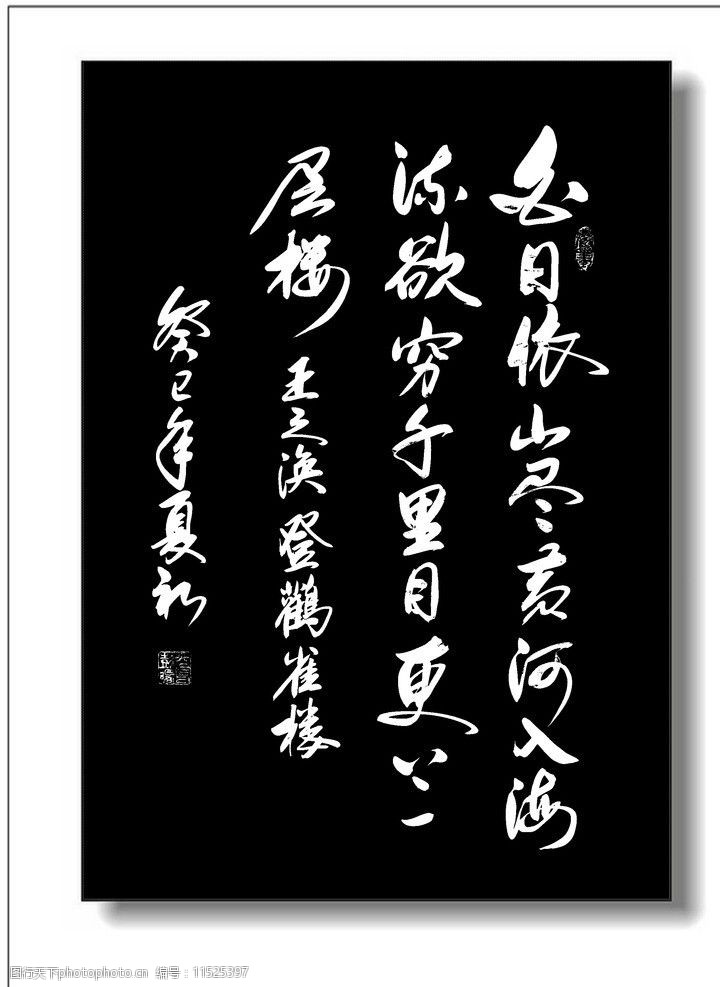 白日依山尽黄河入海
流欲穷千里目更上一
层楼 王之涣登鸛雀楼
癸巳年夏初
图行天下photophoto.cn 编号：11525397